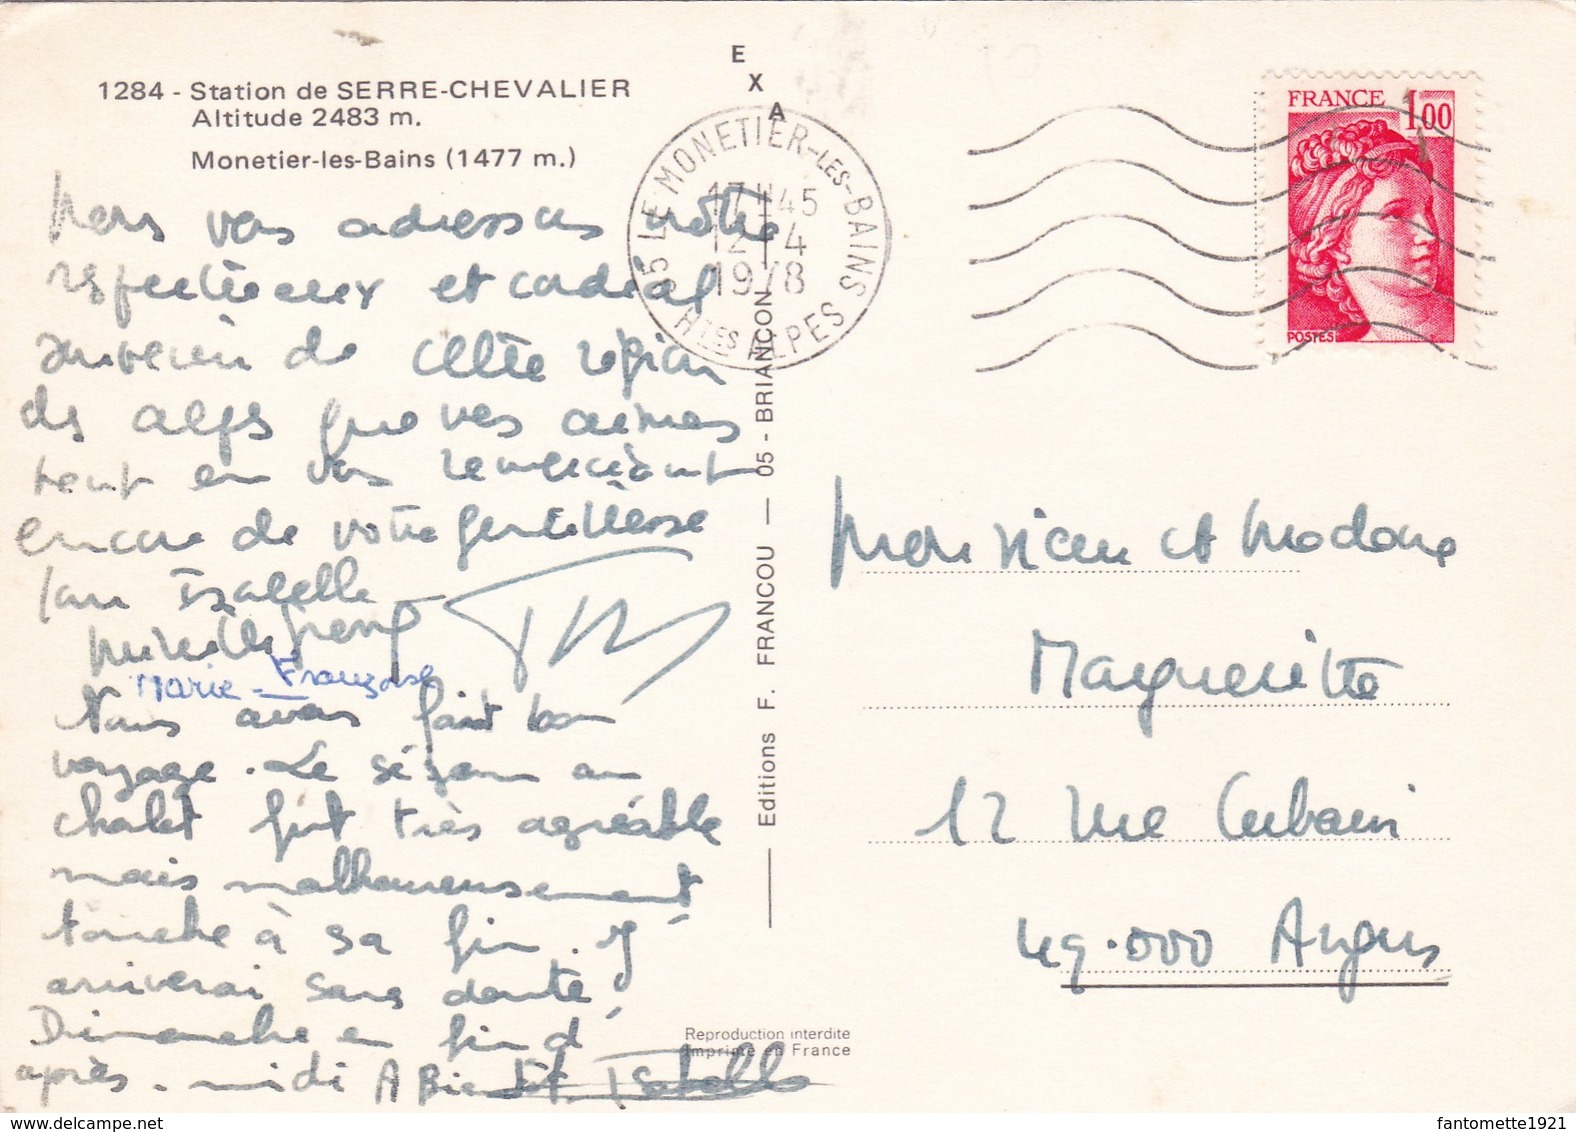 1284 - Station de SERRE-CHEVALIER
Altitude 2483 m.
Monetier-les-Bains (1477 m.)
Nous vous adressons notre
respectueux et cordial
souvenir de cette région
des alpes que vous aimez
tout en vous remerciant
encore de votre gentillesse
Isabelle
Mireille
Marie-Françoise
Nous avons fait bon
voyage. Le séjour au
chalet fut très agréable
mais malheureusement
touche à sa fin. J'
arriverai sans doute
Dimanche en fin d'
après-midi A Bientôt Isabelle
E
X
A
Editions F. FRANCOU — 05 - BRIANCON
Reproduction interdite
Imprimé en France
05 LE MONETIER-LES-BAINS
17H45
12-4
1978
HTES ALPES
FRANCE 1,00
POSTES
Monsieur et Madame
Margueritte
12 rue
49.000 Angers
fantomette1921